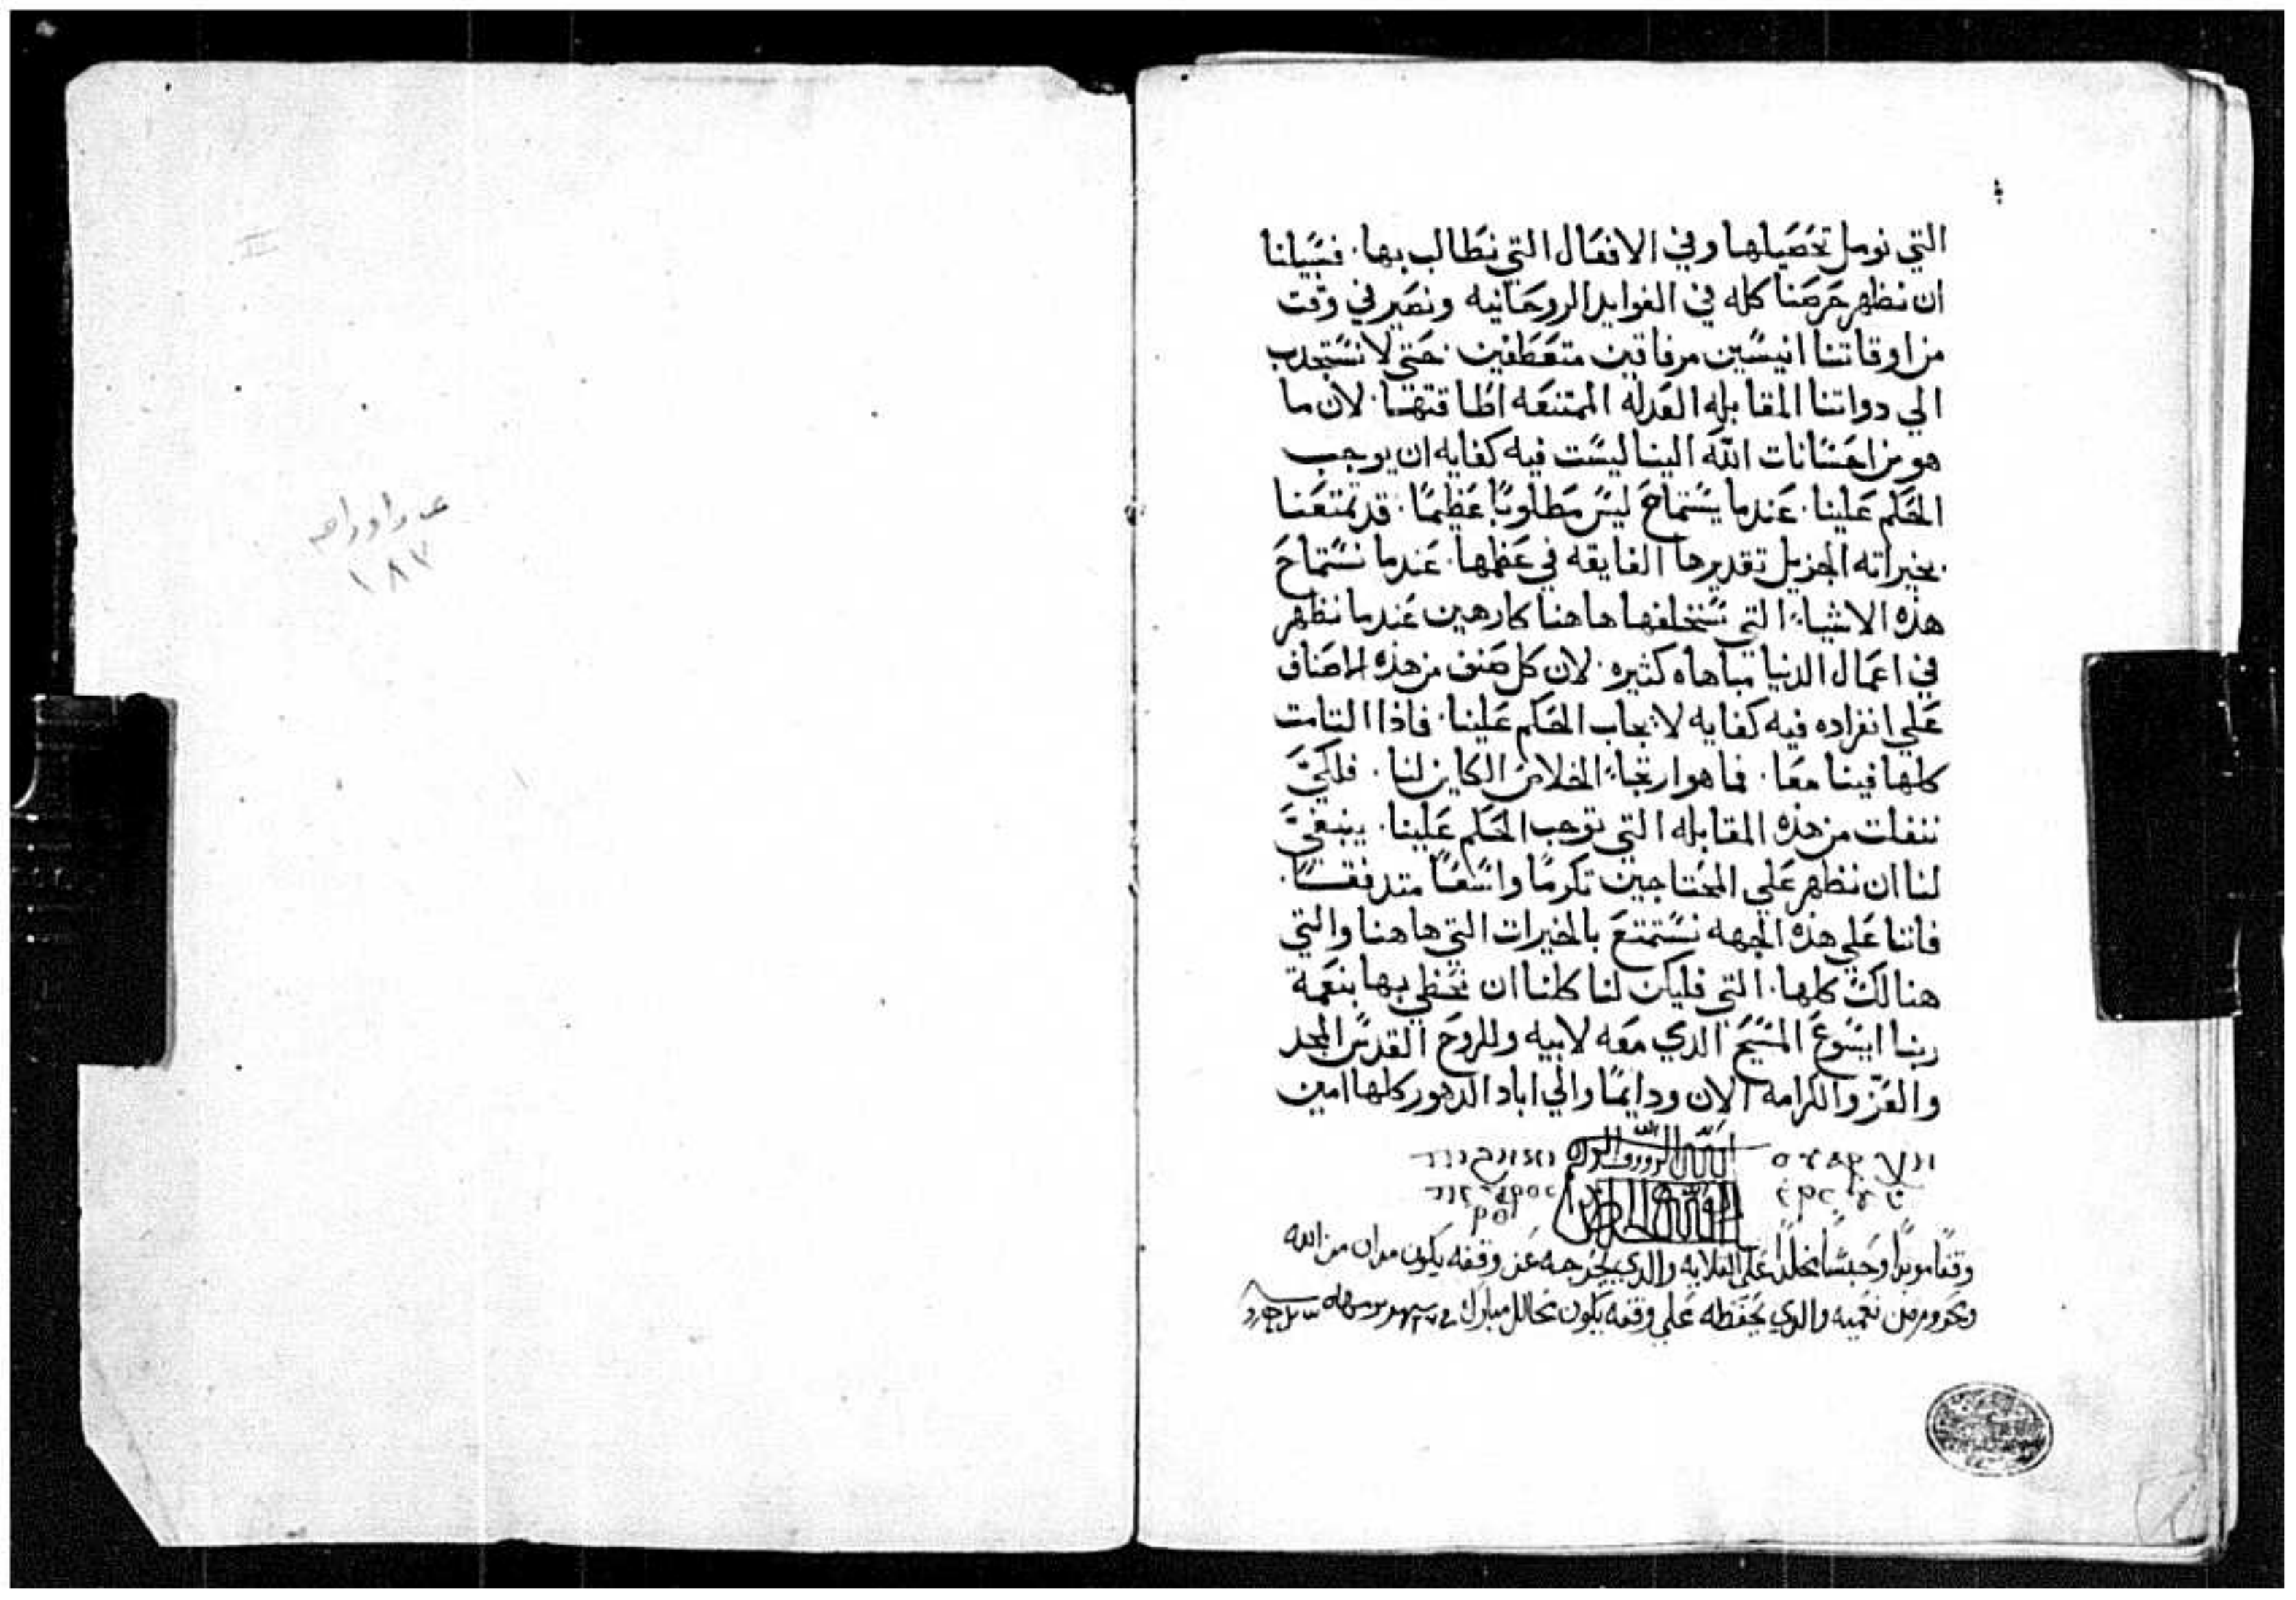 التي نومل تحصيلها وفي الافعال التي نطالب بها. فسبيلنا
ان نظهر حرصنا كله في الفوايد الروحانيه ونصير في وقت
من اوقاتنا انيسين مرفاقين متعطفين. حتى لا نستجدب
الي دواتنا المقابله العدله الممتنعه اطاقتها. لان ما
هو من احسانات الله الينا ليست فيه كفايه ان يوجب
الحكم علينا. عندما يستماح ليس مطلوبًا عظيمًا. قد تمتعنا
بخيراته الجزيل تقديرها الفايقه في عظمها. عندما نستماح
هذه الاشياء التي سنخلفها هاهنا كارهين عندما نظهر
في اعمال الدنيا مباهاه كثيره. لان كل صنف من هذه الاصناف
علي انفراده فيه كفايه لايجاب الحكم علينا. فاذا التامت
كلها فينا معًا. فما هو ارتجاء الخلاص الكاين لنا. فلكيَّ
ننفلت من هذه المقابله التي توجب الحكم علينا. ينبغيَّ
لنا ان نظهر علي المحتاجين تكرمًا واسعًا متدفقًا.
فاننا علي هذه الجهه نستمتع بالخيرات التي هاهنا والتي
هنالك كلها. التي فليكن لنا كلنا ان نحظي بها بنعمة
ربنا ايسوع المسيح الدي معه لابيه وللروح القدس المجد
والعز والكرامه الان ودايمًا والي اباد الدهور كلها امين
وقفًا موبدًا وحبسًا مخلدًا علي القلايه والدي يخرجه عن وقفه يكون مدان من الله
والدي يحفظه علي وقفه يكون محالل مبارك
١٨٧